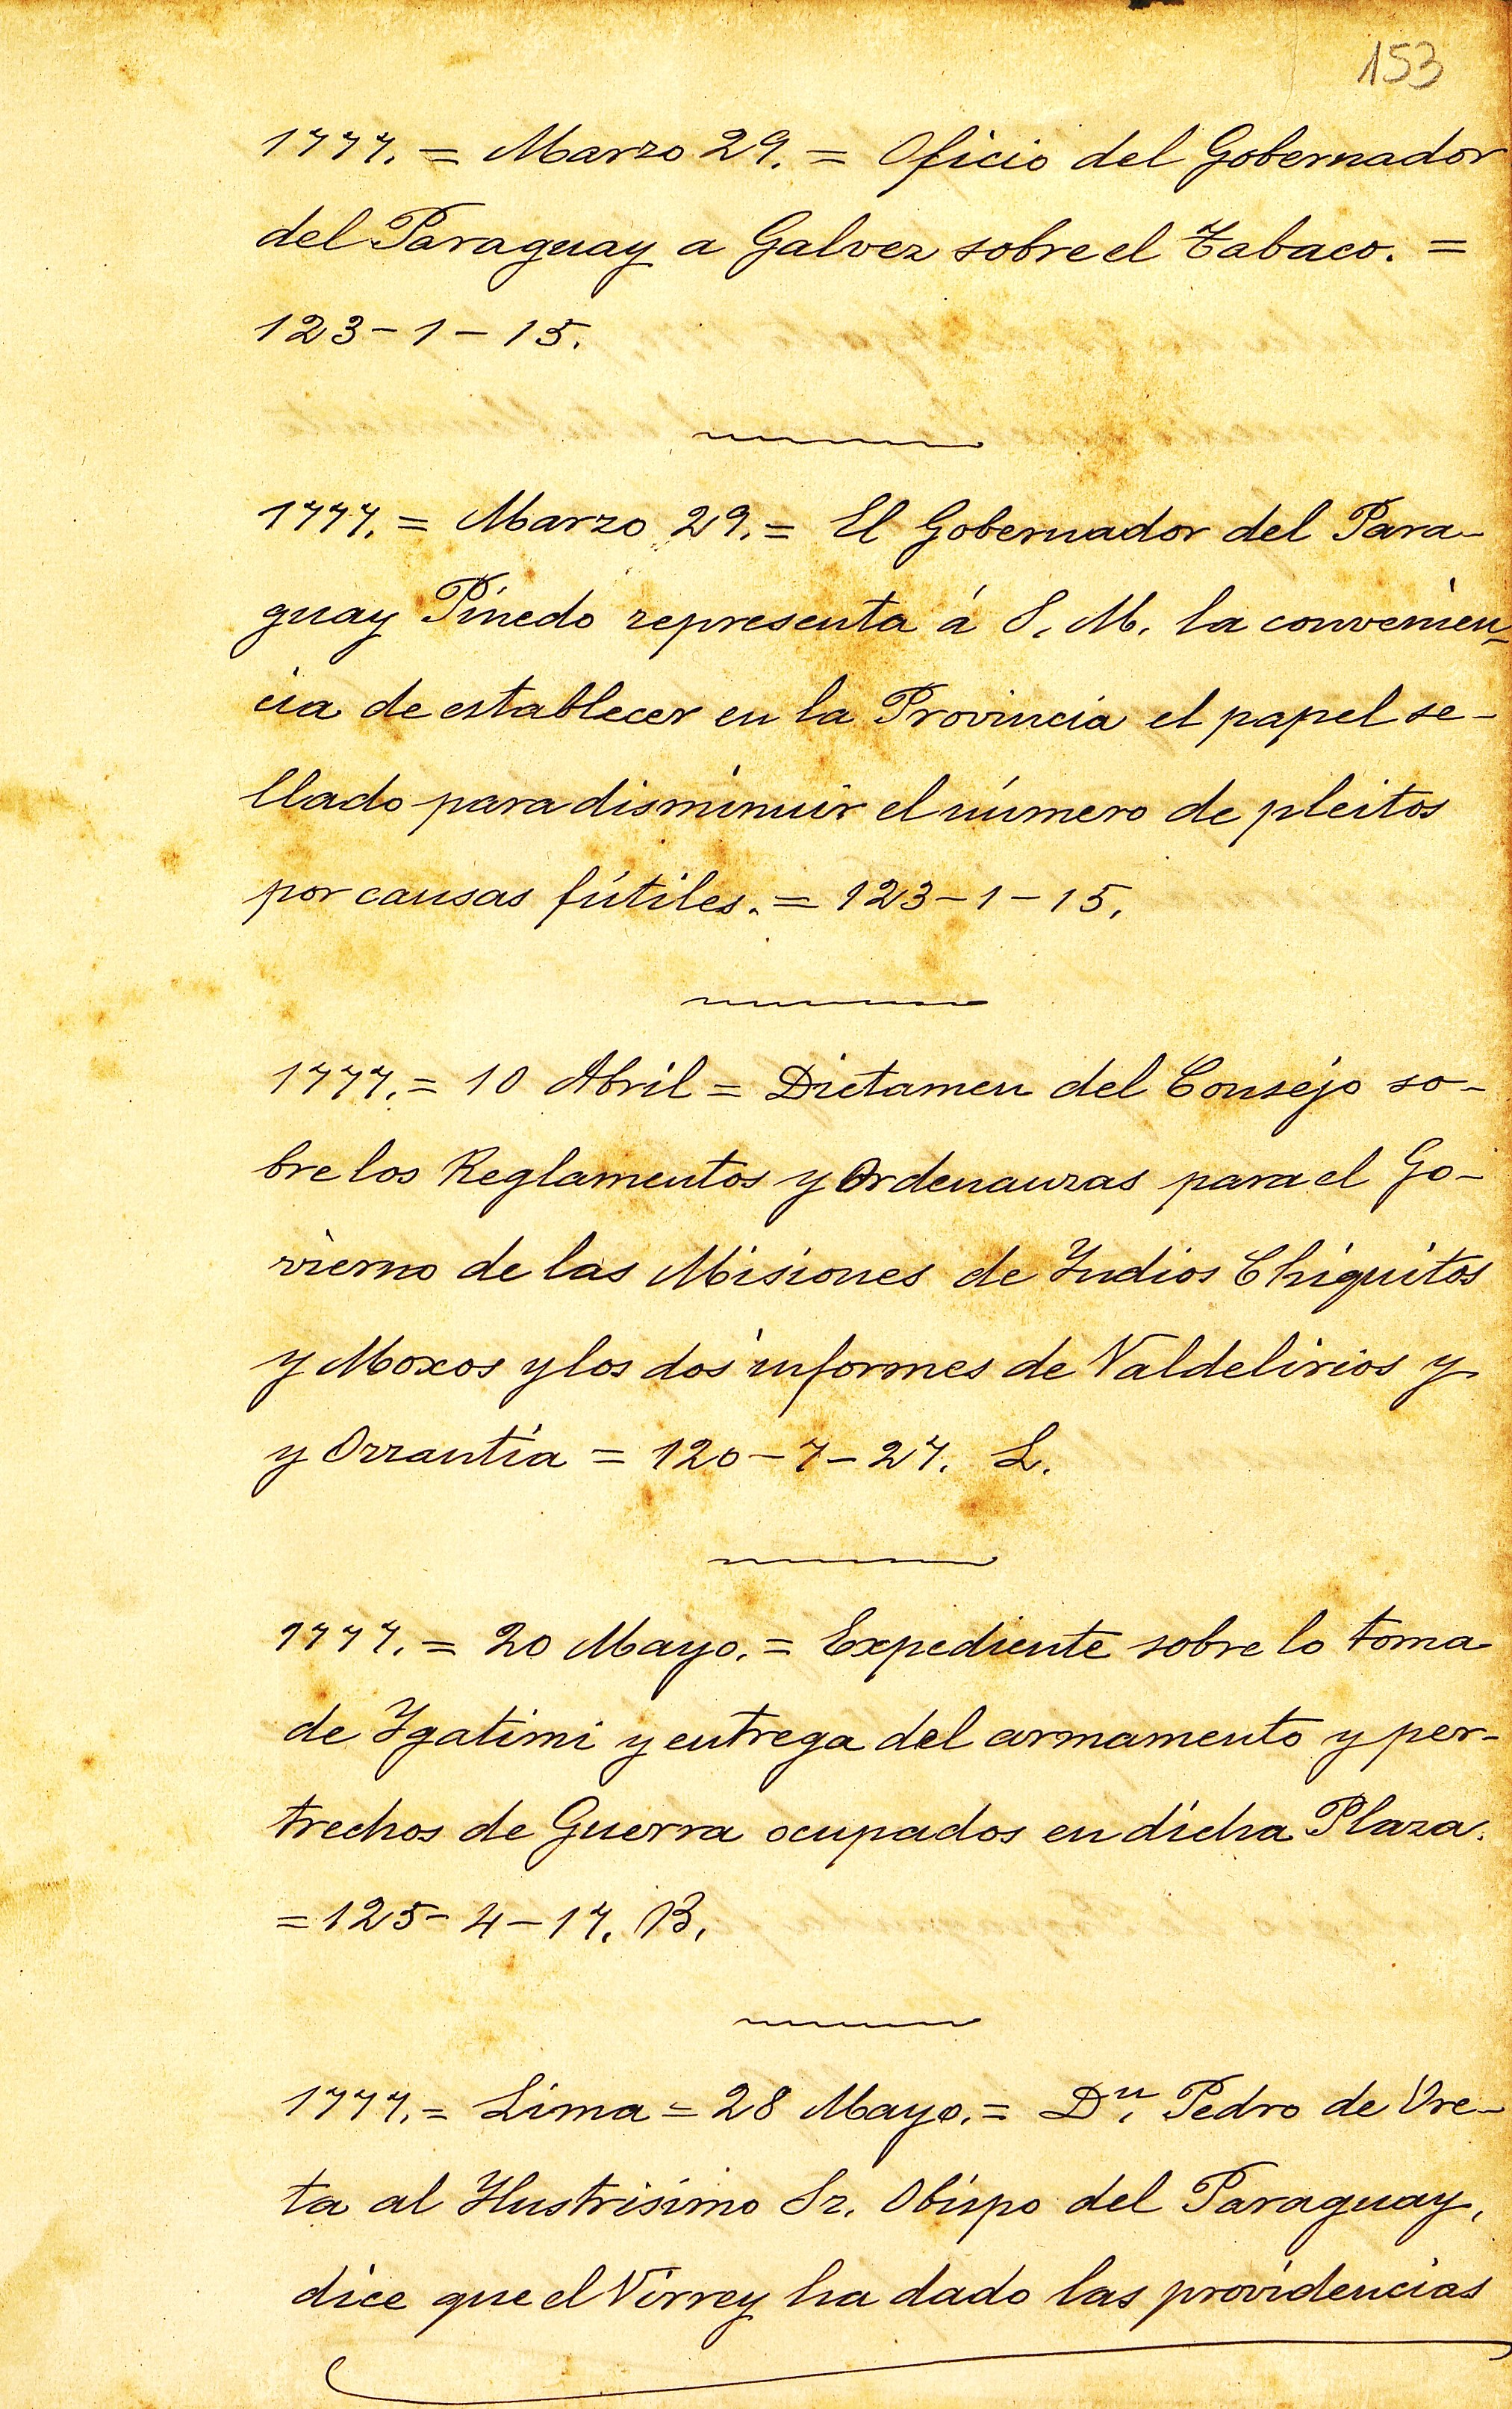 153
1777. = Marzo 29. = Oficio del Gobernador
del Paraguay a Galvez sobre el Tabaco. =
123-1-15.
1777. = Marzo 29. = El Gobernador del Para-
guay Pinedo representa á S. M. la convenien-
cia de establecer en la Provincia el papel se-
llado para disminuir el número de pleitos
por causas fútiles. = 123-1-15.
1777. = 10 Abril = Dictamen del Consejo so-
bre los Reglamentos y Ordenanzas para el Go-
vierno de las Misiones de Indios Chiquitos
y Moxos y los dos informes de Valdelirios y
y Orrantia = 120-7-27. L.
1777. = 20 Mayo. = Expediente sobre lo toma
de Igatimi y entrega del armamento y per-
trechos de Guerra ocupados en dicha Plaza.
= 125-4-17. B.
1777. = Lima = 28 Mayo. = Dn. Pedro de Ure-
ta al Ilustrisimo Sr. Obispo del Paraguay,
dice que el Virrey ha dado las providencias